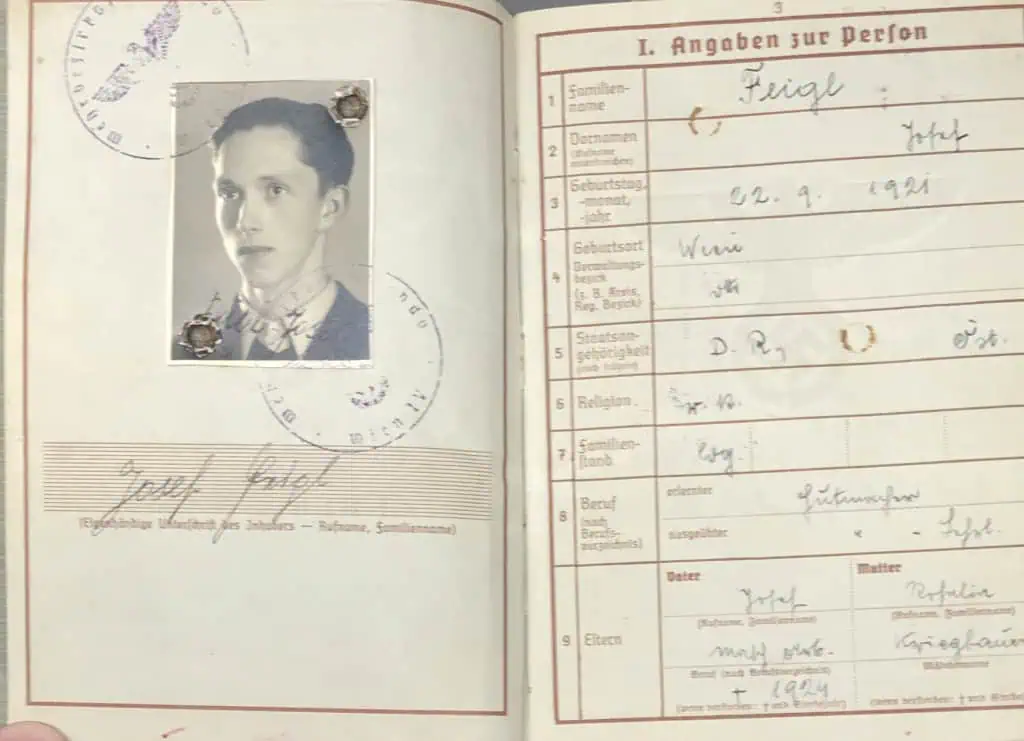 Josef Feigl
(Eigenhändige Unterschrift des Inhabers — Rufname, Familienname)
3
I. Angaben zur Person
1 Familien-
name
Feigl
2 Vornamen
(Rufname
unterstreichen)
Josef
3 Geburtstag,
-monat,
-jahr
22. 9. 1921
4 Geburtsort
Verwaltungs-
bezirk
(z. B. Kreis,
Reg. Bezirk)
Wien
5 Staatsan-
gehörigkeit
D. R.,
6 Religion
7 Familien-
stand
ldg.
8 Beruf
(nach
Berufs-
verzeichnis)
erlernter
Hutmacher
ausgeübter
" -
9 Eltern
Vater
Josef
(Rufname, Familienname)
Beruf (nach Berufsverzeichnis)
† 1924
(wenn verstorben: † und Sterbejahr)
Mutter
Rosalia
(Rufname, Familienname)
Mädchenname
(wenn verstorben: † und Sterbe